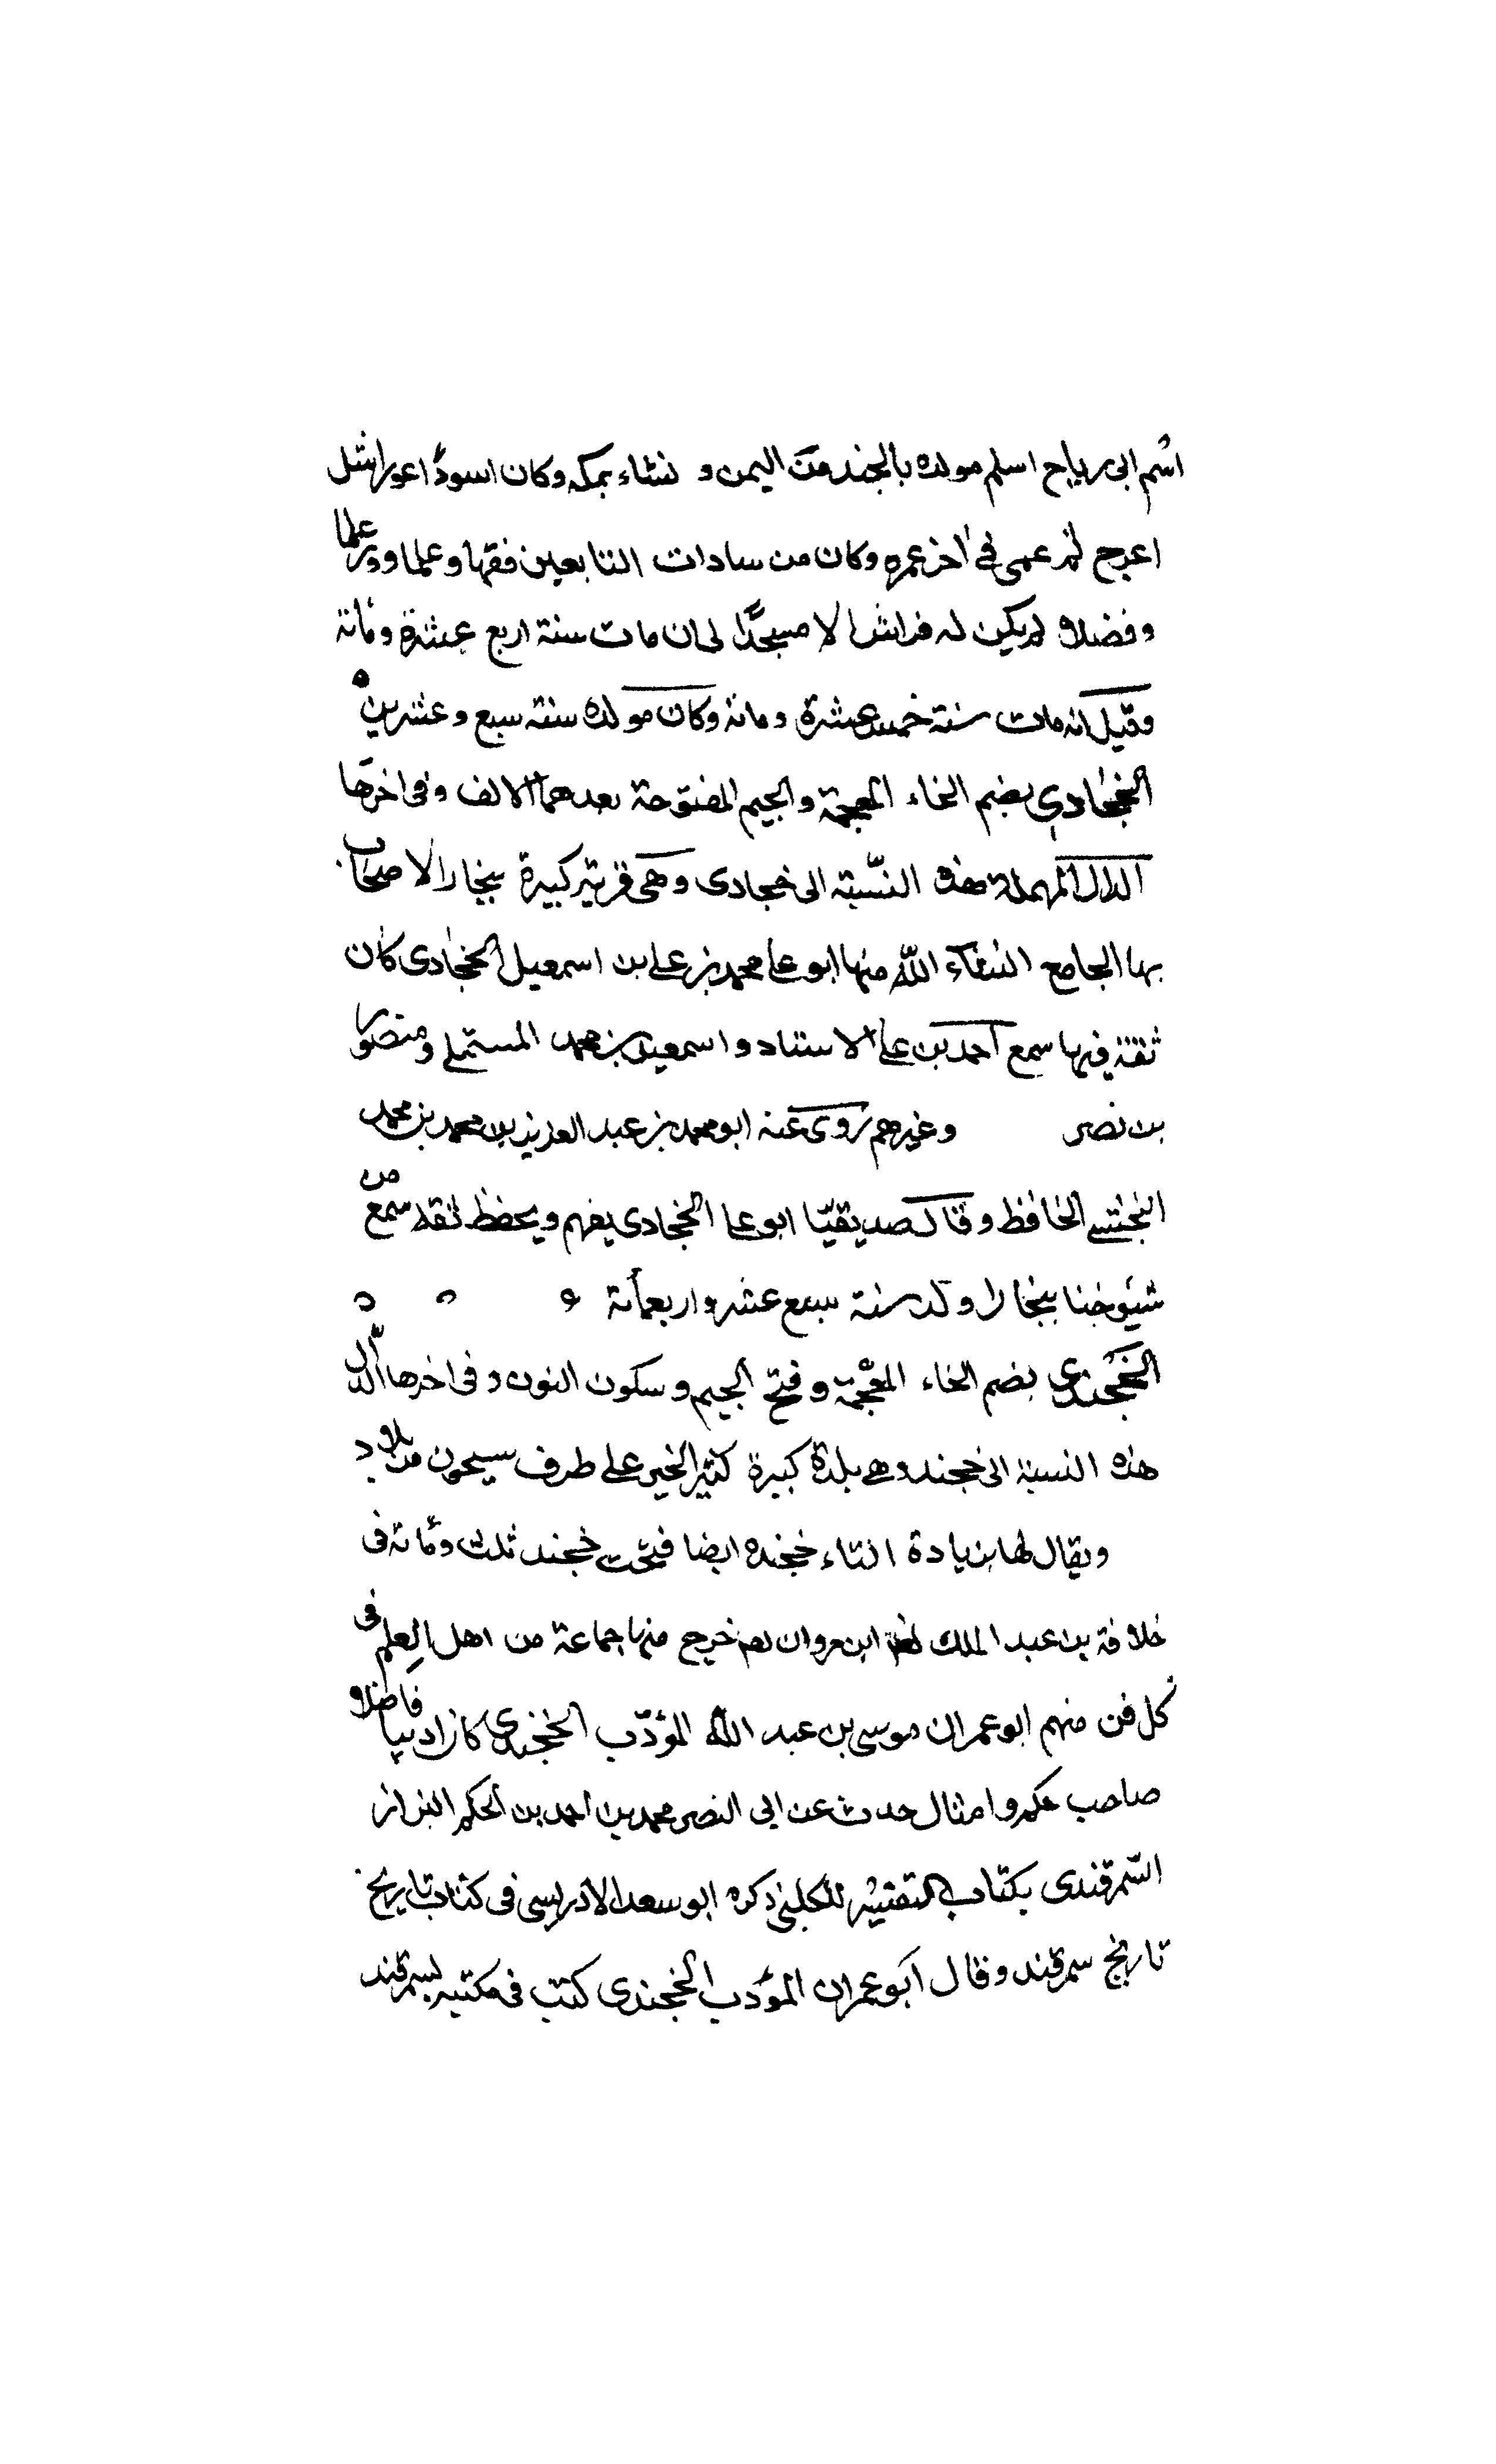 اسم ابى رباح اسلم مولده بالجند من اليمن و نشاء بمكه وكان اسود اعور اشل
اعرج ثم عمى فى اخر عمره وكان من سادات التابعين فقها وعلما وورعا
وفضلا لم يكن له فراش الا مسجد الى ان مات سنة اربع عشرة ومائة
وقيل انه مات سنة خمس عشرة ومائة وكان مولده سنة سبع وعشرين
الخجادى بضم الخاء المعجمة والجيم المفتوحة بعدهما الالف وفى اخرها
الدال المهملة هذه النسبة الى خجادى وهى قرية كبيرة ببخارا لاصحاب
بها الجامع الشفاء الله منها ابو على محمد بن على بن اسمعيل الخجادى كان
ثقة فيها سمع احمد بن على الاستاد واسمعيل بن محمد المستملى ومنصور
بن نصر وغيرهم روى عنه ابو محمد بن عبد العزيز بن محمد بن محمد
النخشبى الحافظ وقال صديقنا ابو على الخجادى يفهم ويحفظ ثقة سمع من
شيوخنا ببخارا ولد سنة سبع عشر واربعمائة
الخجندى بضم الخاء المعجمة وفتح الجيم وسكون النون وفى اخرها الدال
هذه النسبة الى خجند وهى بلدة كبيرة كثير الخير على طرف سيحون من بلاد
ويقال لها بزيادة التاء خجنده ايضا فتحت خجند ثلث ومائة فى
خلافة بن عبد الملك ابن مروان خرج منها جماعة من اهل العلم فى
كل فن منهم ابو عمران موسى بن عبد الله المؤدب الخجندى كان اديبا فاضلا
صاحب حكم وامثال حدث عن ابى النصر محمد بن احمد بن الحكم البزاز
السمرقندى بكتاب للكلبى ذكره ابو سعد الادريسى فى كتاب تاريخ
تاريخ سمرقند وقال ابو عمران المؤدب الخجندى كتب فى مكتبه بسمرقند